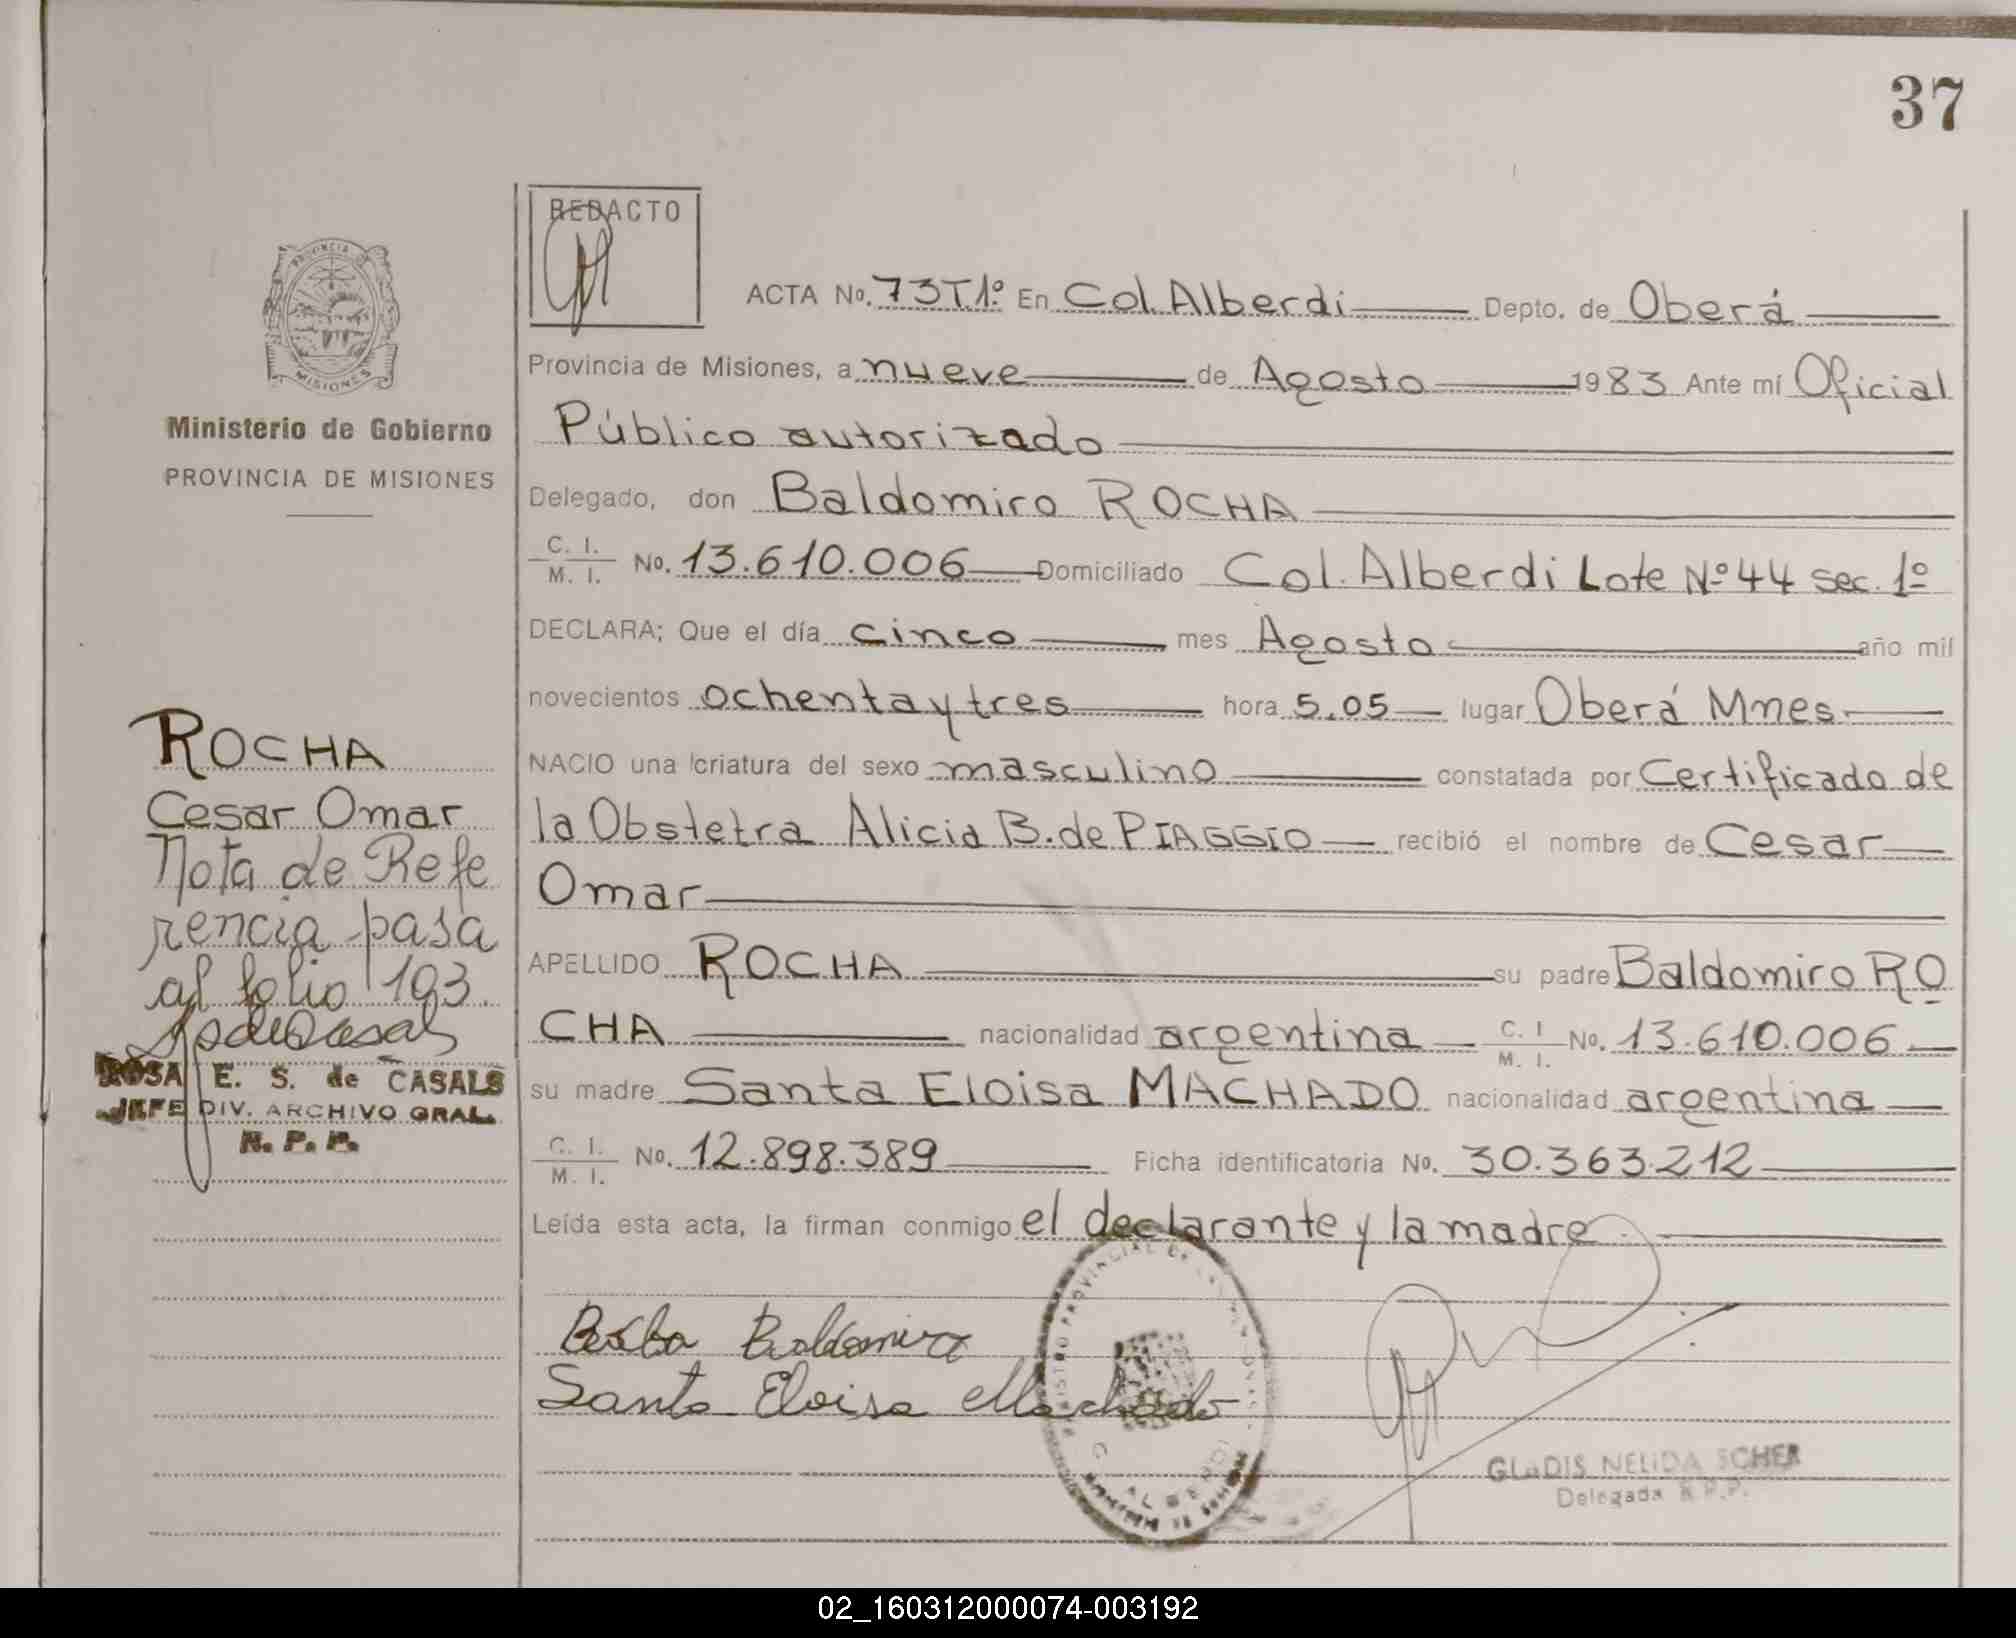 37
REDACTO
ACTA No. 73T1º En Col. Alberdi Depto. de Oberá
Provincia de Misiones, a nueve de Agosto 1983 Ante mí Oficial
Público autorizado
Delegado, don Baldomiro ROCHA
C. I.
M. I. No. 13.610.006 Domiciliado Col. Alberdi Lote Nº 44 sec. 1º
DECLARA; Que el día cinco mes Agosto año mil
novecientos ochenta y tres hora 5.05 lugar Oberá Mnes.
NACIO una criatura del sexo masculino constatada por Certificado de
la Obstetra Alicia B. de PIAGGIO recibió el nombre de Cesar
Omar
APELLIDO ROCHA su padre Baldomiro RO
CHA nacionalidad argentina C. I.
M. I. No. 13.610.006
su madre Santa Eloisa MACHADO nacionalidad argentina
C. I.
M. I. No. 12.898.389 Ficha identificatoria No. 30.363.212
Leída esta acta, la firman conmigo el declarante y la madre
Baldomiro
Santa Eloisa Machado
GLADIS NELIDA SCHER
Delegada R.P.P.
PROVINCIA DE
MISIONES
Ministerio de Gobierno
PROVINCIA DE MISIONES
ROCHA
Cesar Omar
Nota de Refe
rencia pasa
al folio 193.
ROSA E. S. de CASALS
JEFE DIV. ARCHIVO GRAL.
R. P. P.
02_160312000074-003192